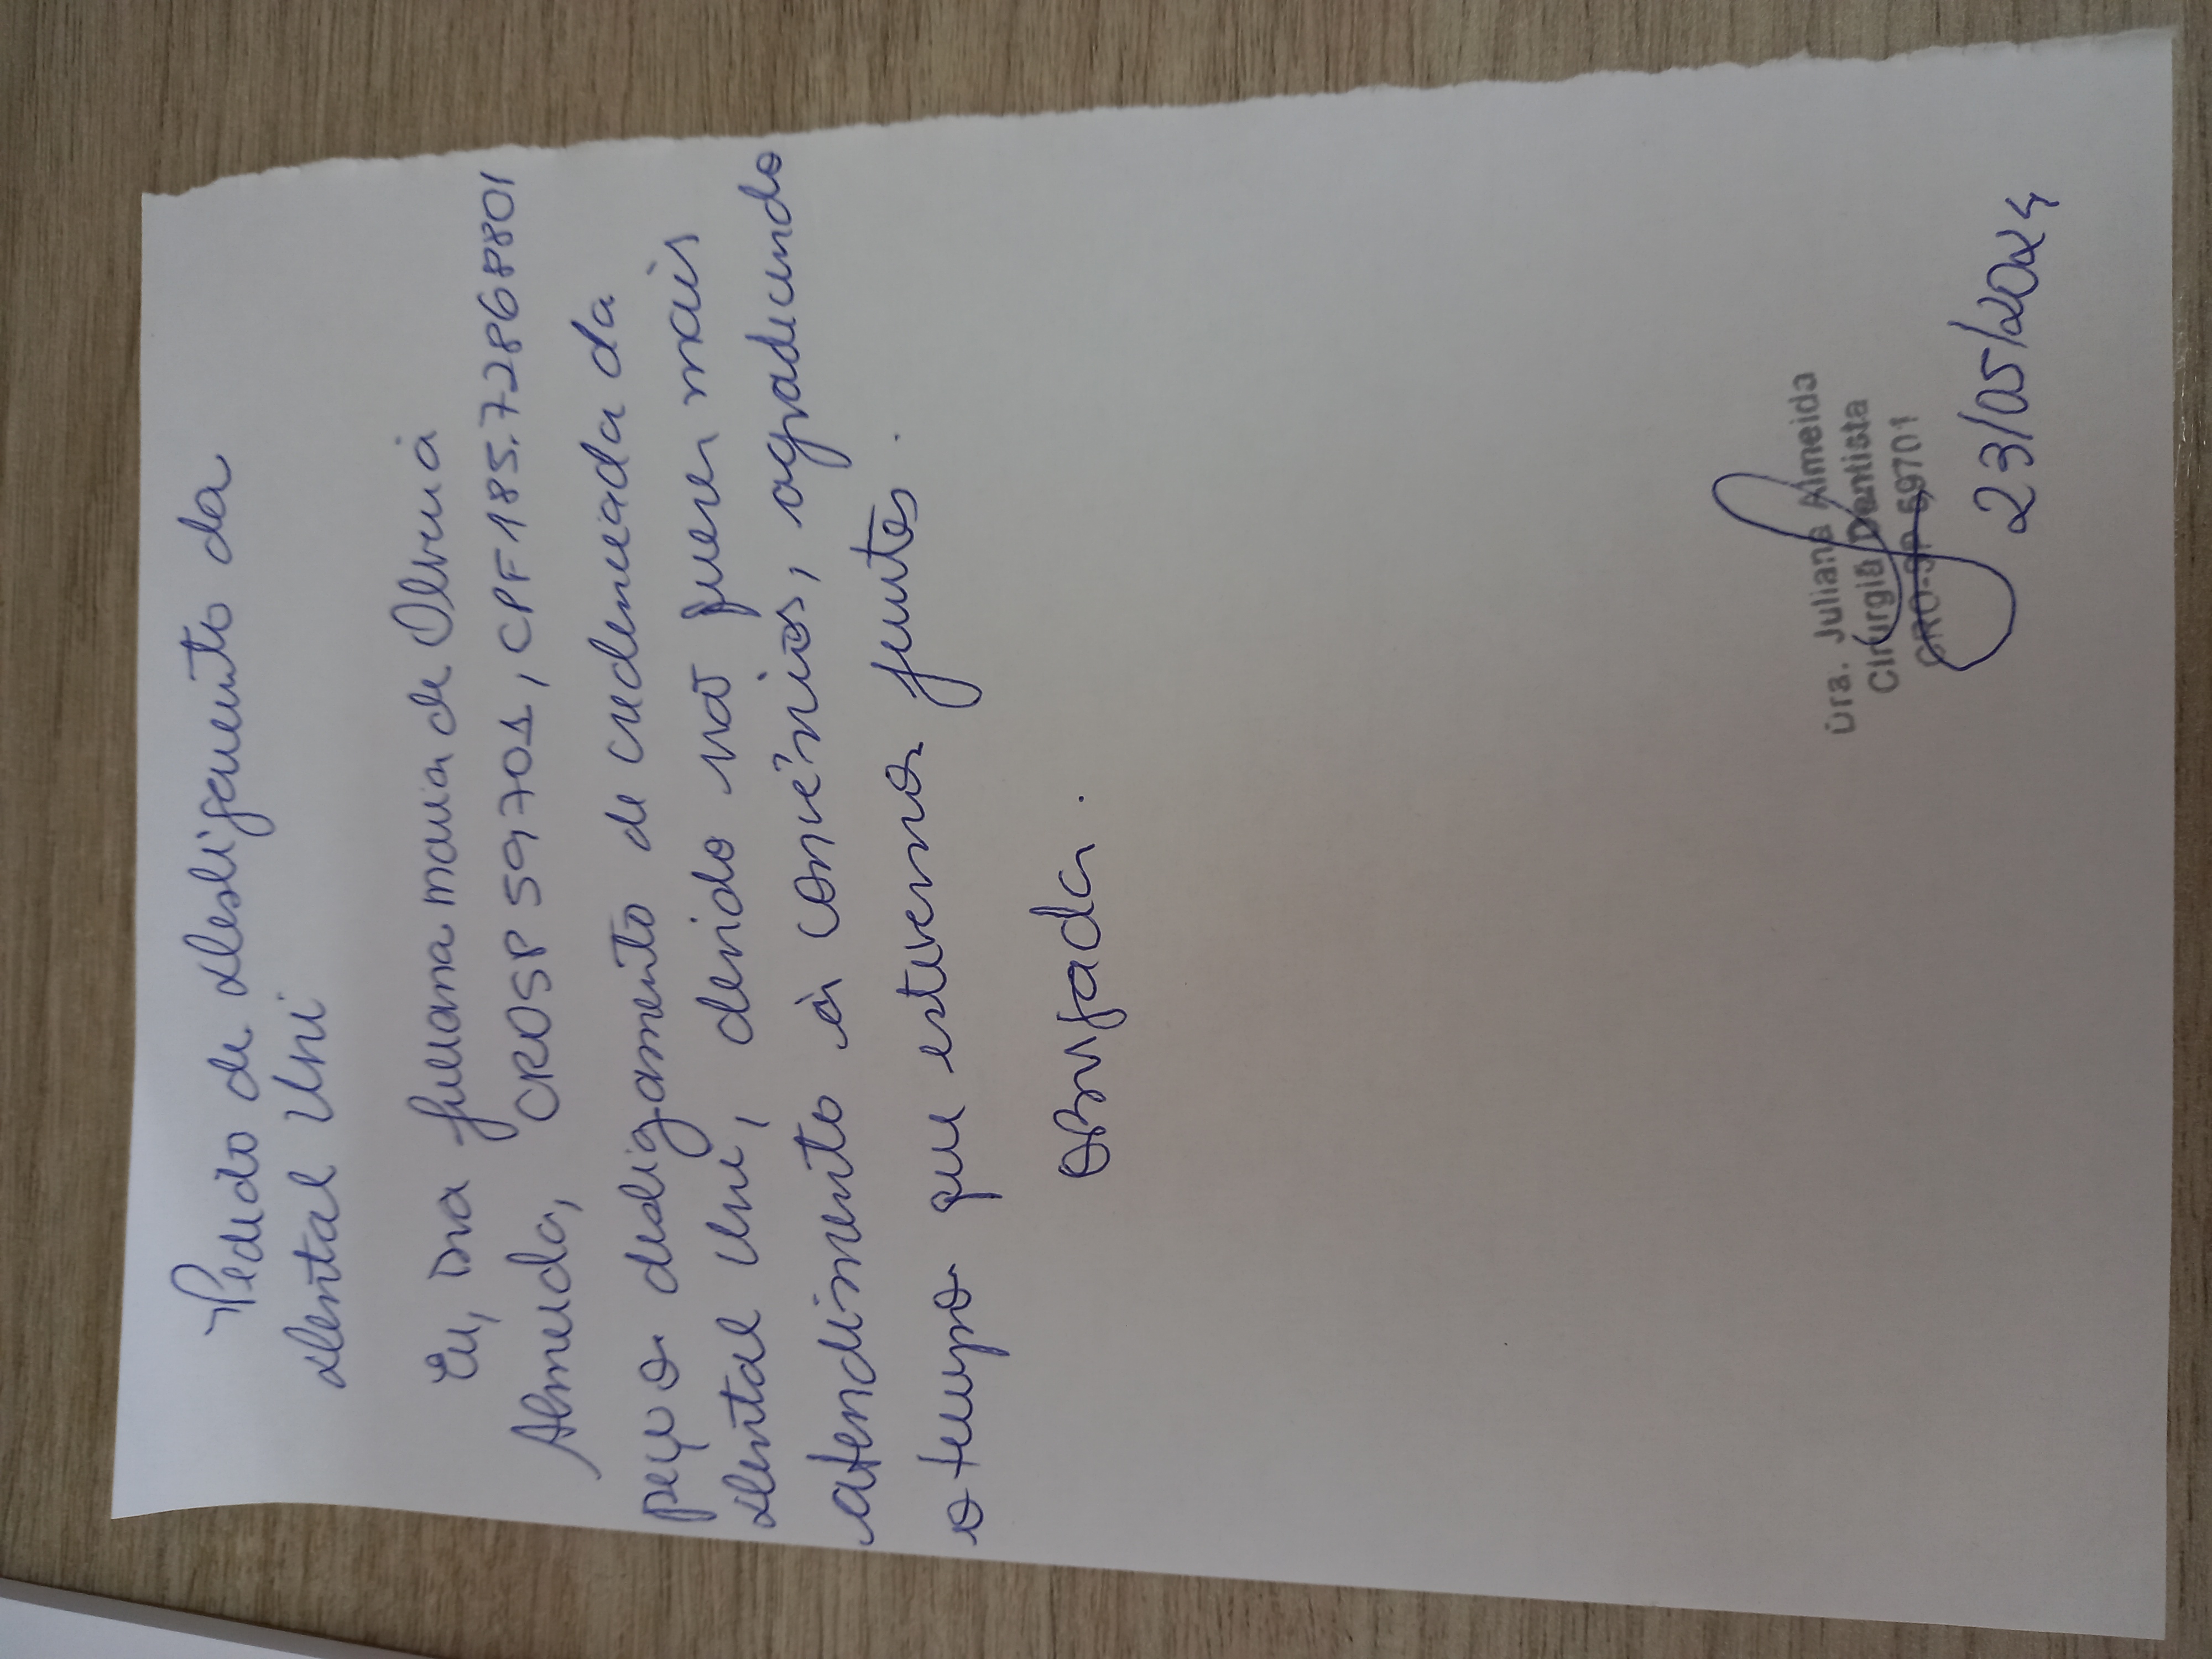 Pedido de desligamento da
dental Uni
Eu, Dra Juliana Maria de Oliveira
Almeida, CROSP 59701, CPF 185.72868801
peço o desligamento de credenciada da
dental Uni, devido não querer mais
atendimento à convênios, agradecendo
o tempo que estivemos juntos.
Obrigada.
Dra. Juliana Almeida
Cirurgiã Dentista
CRO-SP 59701
23/05/2024